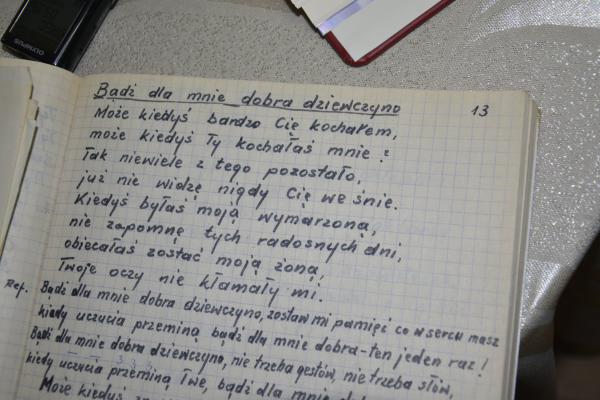 OLYMPUS
13
Bądź dla mnie dobra dziewczyno
Może kiedyś bardzo Cię kochałem,
może kiedyś Ty kochałaś mnie?
Tak niewiele z tego pozostało,
już nie widzę nigdy Cię we śnie.
Kiedyś byłaś moją wymarzoną,
nie zapomnę tych radosnych dni,
obiecałaś zostać moją żoną,
Twoje oczy nie kłamały mi.
Ref. Bądź dla mnie dobra dziewczyno, zostaw mi pamięć co w sercu masz
kiedy uczucia przeminą bądź dla mnie dobra - ten jeden raz!
Bądź dla mnie dobra dziewczyno, nie trzeba gestów, nie trzeba słów,
kiedy uczucia przeminą Twe, bądź dla mnie
Może kiedyś